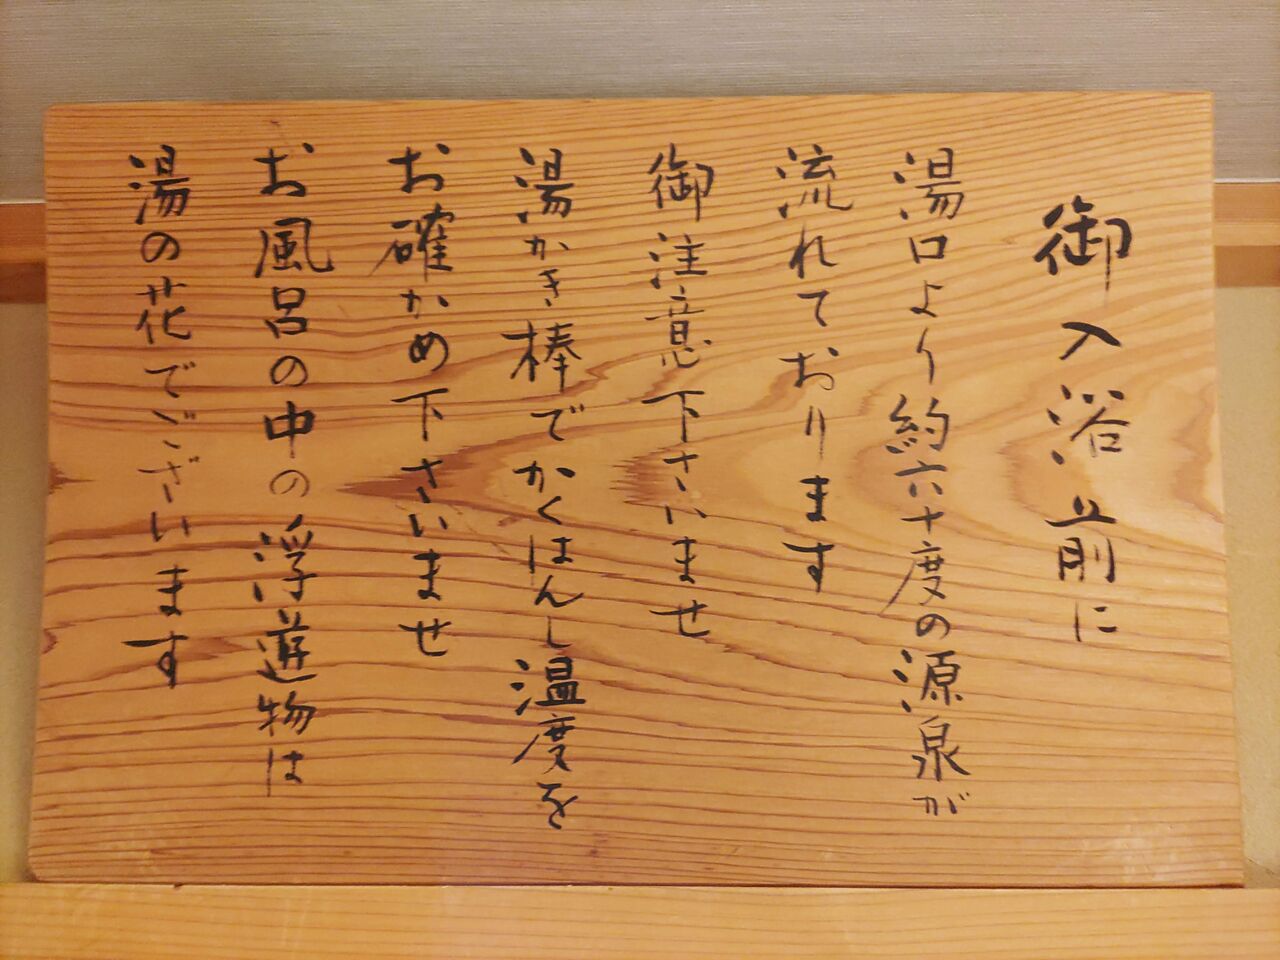 御入浴前に
湯口より約六十度の源泉が
流れております
御注意下さいませ
湯かき棒でかくはんし温度を
お確かめ下さいませ
お風呂の中の浮遊物は
湯の花でございます